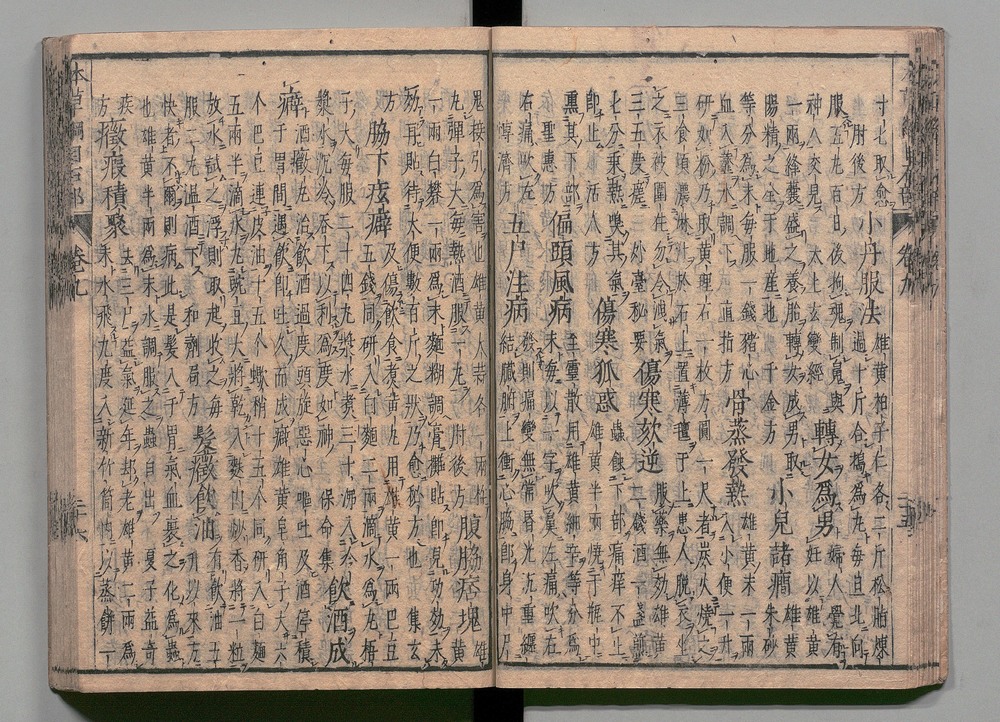 寸七取愈
肘後方
小丹服法
雄黃柏子仁各二斤松脂煉
過十斤合搗爲丸每旦北向
服五丸百日後拘魂制魄與
神人交見太上玄變經
轉女爲男
婦人覺有
妊以雄黃
一兩絳囊盛之養胎轉女成男取
陽精之全于地產也千金方
小兒諸癇
雄黃
朱砂
等分爲末每服一錢猪心
血入虀水調下直指方
骨蒸發熱
雄黃末一兩
入小便一升
研如粉乃取黃理石一枚方圓一尺者炭火燒之
三食頃濃淋汁於石上置薄氊于上患人脱衣坐
之衣被圍住勿令洩氣
三五度瘥外臺秘要
傷寒欬逆
服藥無効雄黃
二錢酒一盞煎
七分乘熱嗅其氣
即止活人方
傷寒狐惑
蟲蝕下部痛痒不止
雄黃半兩燒于瓶中
熏其下部
聖惠方
偏頭風病
至靈散用雄黃細辛等分爲
末每以一字吹鼻左痛吹右
右痛吹左
博濟方
五尸注病
發則痛變無常昏恍沈重纏
結臟腑上衝心脇即身中尸
鬼接引爲害也雄黃大蒜各一兩杵
丸彈子大每熱酒服一丸肘後方
腹脇痞塊
雄
黃
一兩白礬一兩爲末麪糊調膏攤貼即見功効未
効再貼待大便數百斤之狀乃愈秘方也集玄
方
脇下痃癖
及傷飲食煮黃丸用雄黃一兩巴豆
五錢同研入白麪二兩滴水爲丸梧
子大每服二十四丸漿水煮三十沸入冷
漿水沉冷吞下以利爲度如神保命集
飲酒成
癖
酒癥丸治飲酒過度頭旋惡心嘔吐及酒停積
于胃間遇飲即吐久而成癖雄黃皂角子大六
个巴豆連皮油十五个蠍梢十五个同研入白麪
五兩半滴水丸豌豆大將乾入麩內炒香將一粒
放水試之浮則取起收之每
服二丸溫酒下和劑局方
髮癥飲油
有飲油五
升以來方
快者不爾則病此是髮入于胃氣血裹之化爲蟲
也雄黃半兩爲末水調服之蟲自出夏子益奇
疾
方
癥瘕積聚
去三尸益氣延年却老雄黃二兩爲
末水飛九度入新竹筒內以蒸餅一
本草綱目石部 卷九